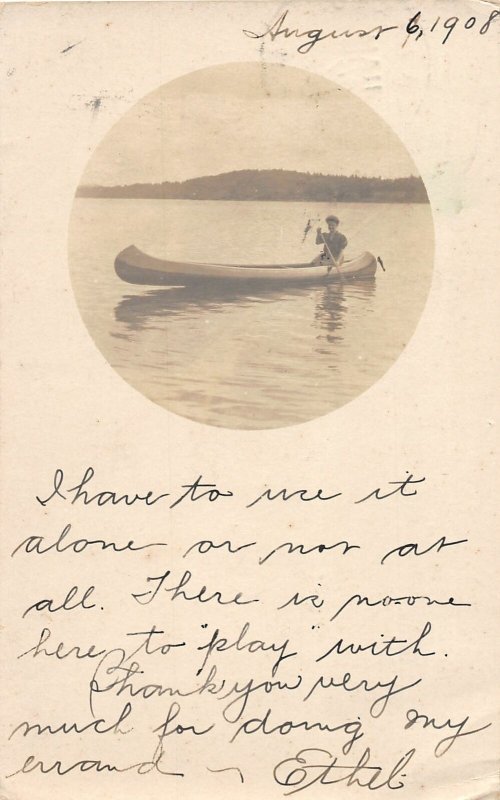 August 6, 1908
I have to use it
alone or not at
all. There is no-one
here to "play" with.
Thank you very
much for doing my
errand ~ Ethel.